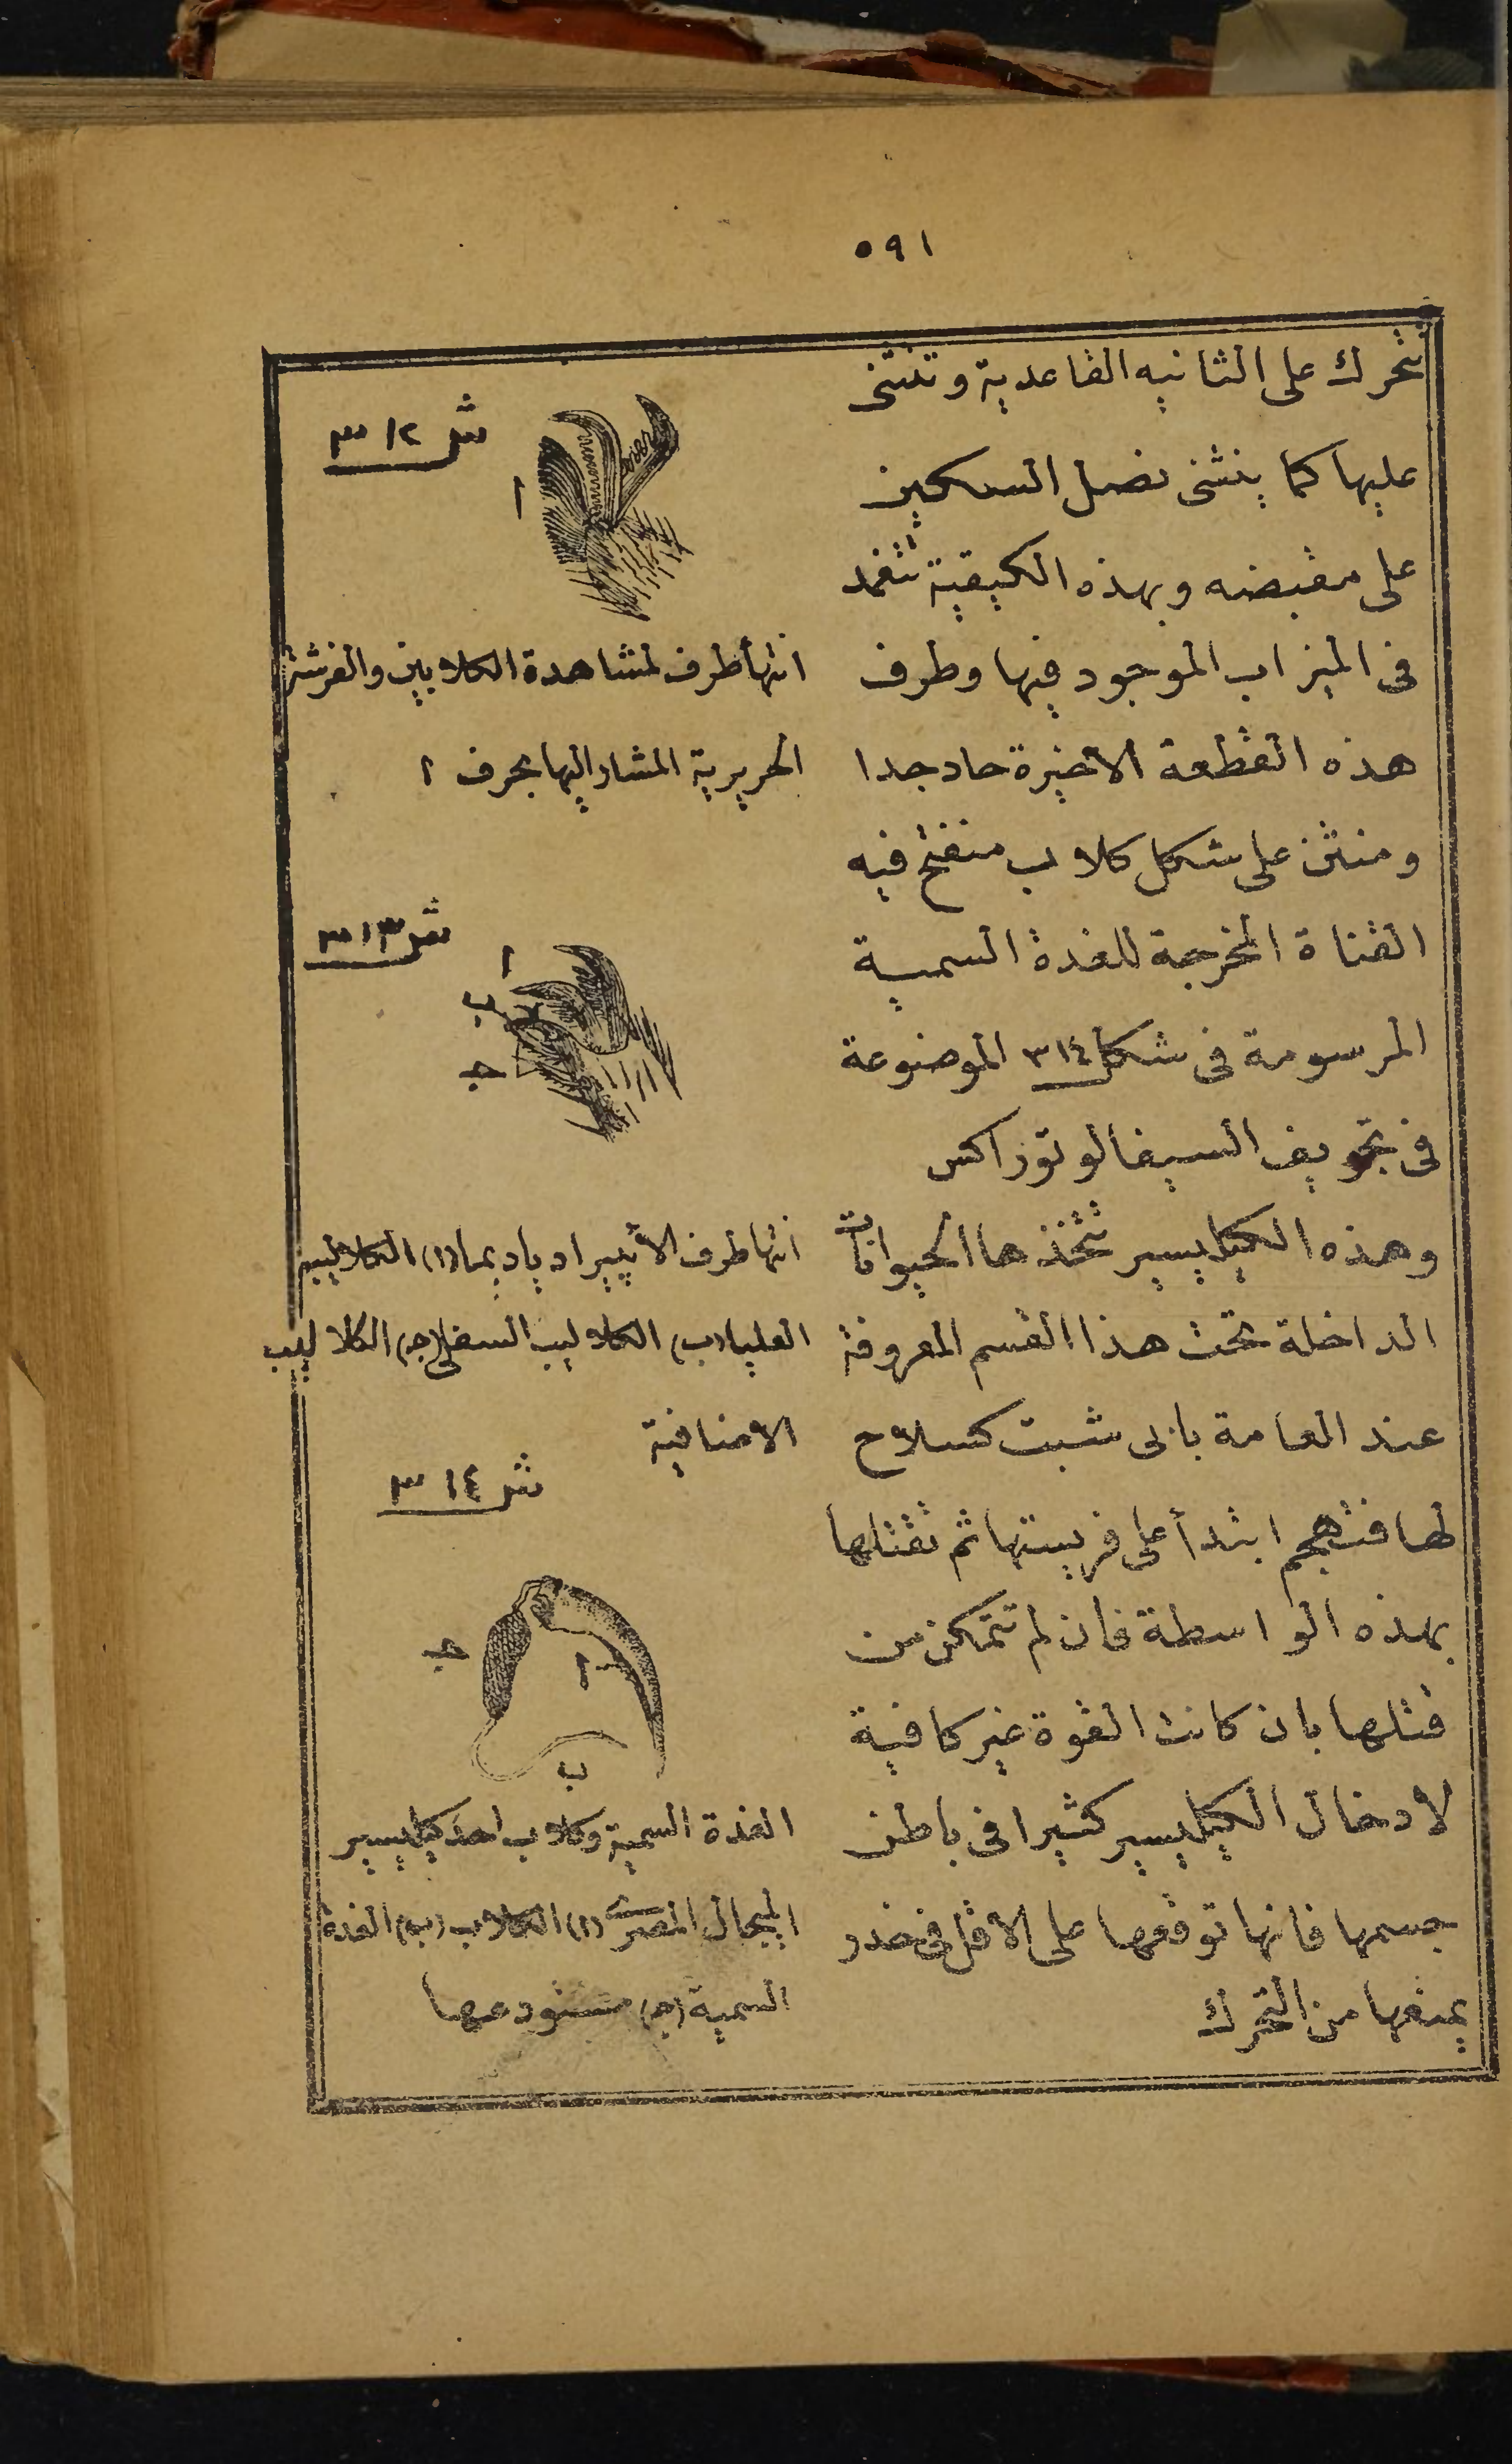 ٥٩١
تتحرك على الثانيه القاعدية وتنثنى
عليها كما ينثنى نصل السكين
على مقبضه وبهذه الكيفية تنغمد
فى الميزاب الموجود فيها وطرف
هذه القطعة الاخيرة حاد جدا
ومنثن على شكل كلاب منفتح فيه
القناة المخرجة للغدة السمية
المرسومة فى شكل ٣١٤ الموضوعة
فى تجويف السيفالوتوراكس
وهذه الكيليسير تتخذها الحيوانات
الداخلة تحت هذا القسم المعروفة
عند العامة بابى شبت كسلاح
لها فتهجم ابتدأ على فريستها ثم تقتلها
بهذه الواسطة فان لم تتمكن من
قتلها بان كانت القوة غير كافية
لادخال الكيليسير كثيرا فى باطن
جسمها فانها توقعها على الاقل فى خدر
يمنعها من التحرك
شر ٣١٢
ا
انتهأ طرف لمشاهدة الكلابين والفرشة
الحريرية المشار اليها بحرف ا
شر ٣١٣
ا
ب
جـ
انتها طرف الأيبيراد ياديما (ا) الكلاليب
العليا (ب) الكلاليب السفلى (جـ) الكلاليب
الاضافية
شر ٣١٤
جـ
ا
ب
الغدة السمية وكلاب احد كيليسير
الميجال المصرى (ا) الكلاب (ب) الغدة
السمية (جـ) مستودعها